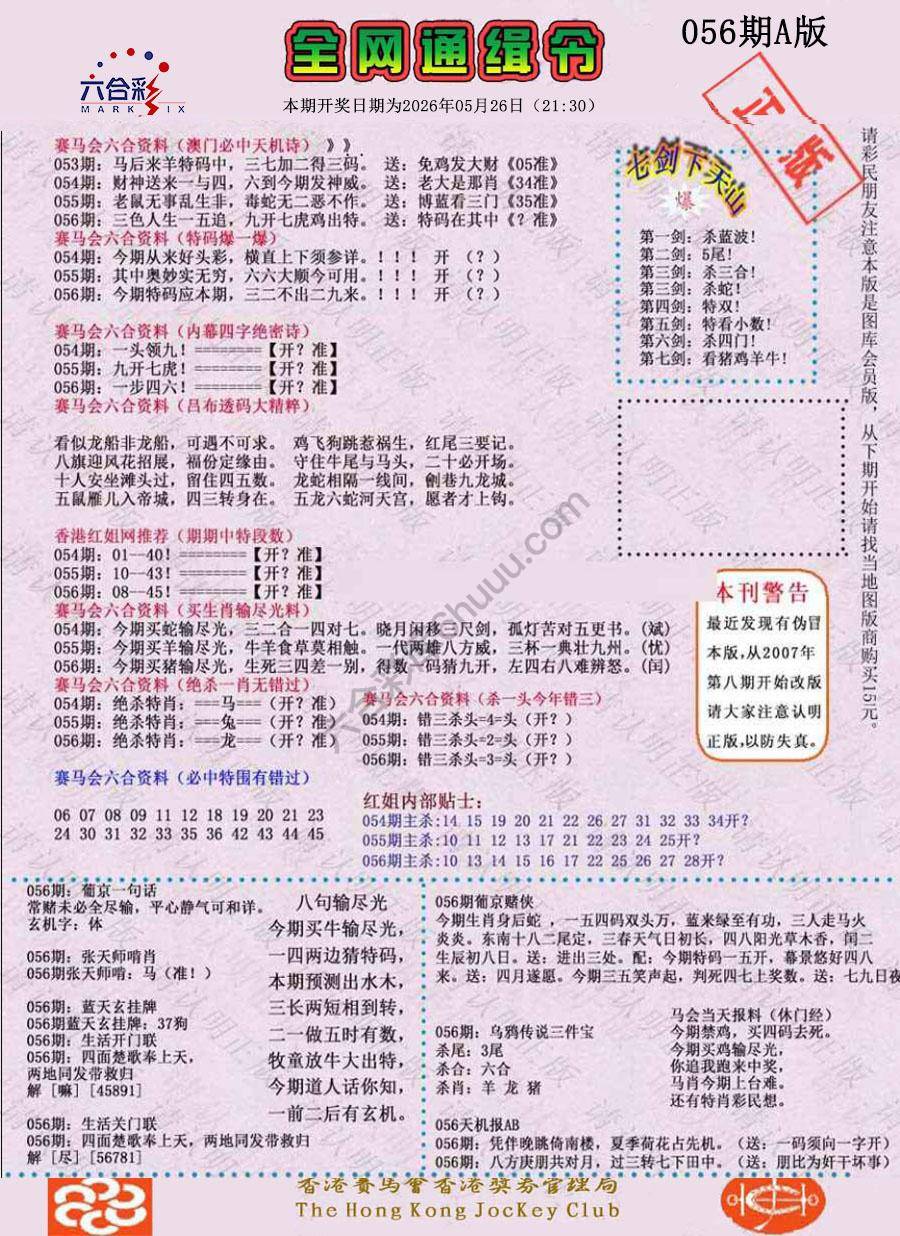 全网通缉令
056期A版
六合彩
MARK SIX
本期开奖日期为2026年05月26日（21:30）
正版
赛马会六合资料（澳门必中天机诗）》》
053期：马后来羊特码中，三七加二得三码。 送：兔鸡发大财《05准》
054期：财神送来一与四，六到今期发神威。 送：老大是那肖《34准》
055期：老鼠无事乱生非，毒蛇无二恶不作。 送：博蓝看三门《35准》
056期：三色人生一五追，九开七虎鸡出特。 送：特码在其中《？准》
赛马会六合资料（特码爆一爆）
054期：今期从来好头彩，横直上下须参详。！！！ 开 （？）
055期：其中奥妙实无穷，六六大顺今可用。！！！ 开 （？）
056期：今期特码应本期，三二不出二九来。！！！ 开 （？）
赛马会六合资料（内幕四字绝密诗）
054期：一头领九！========【开？准】
055期：九开七虎！========【开？准】
056期：一步四六！========【开？准】
赛马会六合资料（吕布透码大精粹）
看似龙船非龙船，可遇不可求。 鸡飞狗跳惹祸生，红尾三要记。
八旗迎风花招展，福份定缘由。 守住牛尾与马头，二十必开场。
十人安坐滩头过，留住四五数。 龙蛇相隔一线间，劊巷九龙城。
五鼠雁儿入帝城，四三转身在。 五龙六蛇河天宫，愿者才上钩。
香港红姐网推荐（期期中特段数）
054期：01--40！========【开？准】
055期：10--43！========【开？准】
056期：08--45！========【开？准】
赛马会六合资料（买生肖输尽光料）
054期：今期买蛇输尽光，三二合一四对七。晓月闲移三尺剑，孤灯苦对五更书。(斌)
055期：今期买羊输尽光，牛羊食草莫相触。一代两雄八方威，三杯一典壮九州。(忧)
056期：今期买猪输尽光，生死三四差一别，得数一码猜九开，左四右八难辨怒。(闰)
赛马会六合资料（绝杀一肖无错过）
054期：绝杀特肖：===马===（开？准）
055期：绝杀特肖：===兔===（开？准）
056期：绝杀特肖：===龙===（开？准）
赛马会六合资料（杀一头今年错三）
054期：错三杀头=4=头（开？）
055期：错三杀头=2=头（开？）
056期：错三杀头=3=头（开？）
赛马会六合资料（必中特围有错过）
06 07 08 09 11 12 18 19 20 21 23
24 30 31 32 33 35 36 42 43 44 45
红姐内部贴士：
054期主杀:14 15 19 20 21 22 26 27 31 32 33 34开？
055期主杀:10 11 12 13 17 21 22 23 24 25开？
056期主杀:10 13 14 15 16 17 22 25 26 27 28开？
七剑下天山
爆
第一剑：杀蓝波！
第二剑：5尾！
第三剑：杀三合！
第三剑：杀蛇！
第四剑：特双！
第五剑：特看小数！
第六剑：杀四门！
第七剑：看猪鸡羊牛！
请彩民朋友注意本版是图库会员版，从下期开始请找当地图版商购买15元。
本刊警告
最近发现有伪冒
本版,从2007年
第八期开始改版
请大家注意认明
正版,以防失真。
056期：葡京一句话
常赌未必全尽输，平心静气可和详。
玄机字：休
056期：张天师啃肖
056期张天师啃：马（准！）
056期：蓝天玄挂牌
056期蓝天玄挂牌：37狗
056期：生活开门联
056期：四面楚歌奉上天，
两地同发带救归
解［嘛］[45891]
056期：生活关门联
056期：四面楚歌奉上天，两地同发带救归
解［尽］[56781]
八句输尽光
今期买牛输尽光，
一四两边猜特码，
本期预测出水木，
三长两短相到转，
二一做五时有数，
牧童放牛大出特，
今期道人话你知，
一前二后有玄机。
056期葡京赌侠
今期生肖身后蛇 ，一五四码双头万，蓝来绿至有功，三人走马火
炎炎。东南十八二尾定，三春天气日初长，四八阳光草木香，闰二
生辰初八日。送：进出三处。配：今期特码一五开，幕景悠好四八
来。送：四月遂愿。今期三五笑声起，判死四七上奖数。送：七九日夜
056期：乌鸦传说三件宝
杀尾：3尾
杀合：六合
杀肖：羊 龙 猪
马会当天报料（休门经）
今期禁鸡，买四码去死。
今期买鸡输尽光，
你追我跑来中奖，
马肖今期上台难。
还有特肖彩民想。
056天机报AB
056期：凭伴晚眺倚南楼，夏季荷花占先机。（送：一码须向一字开）
056期：八方庚朋共对月，过三转七下田中。（送：朋比为奸干坏事）
香港賽馬會香港獎券管理局
The Hong Kong JocKey Club